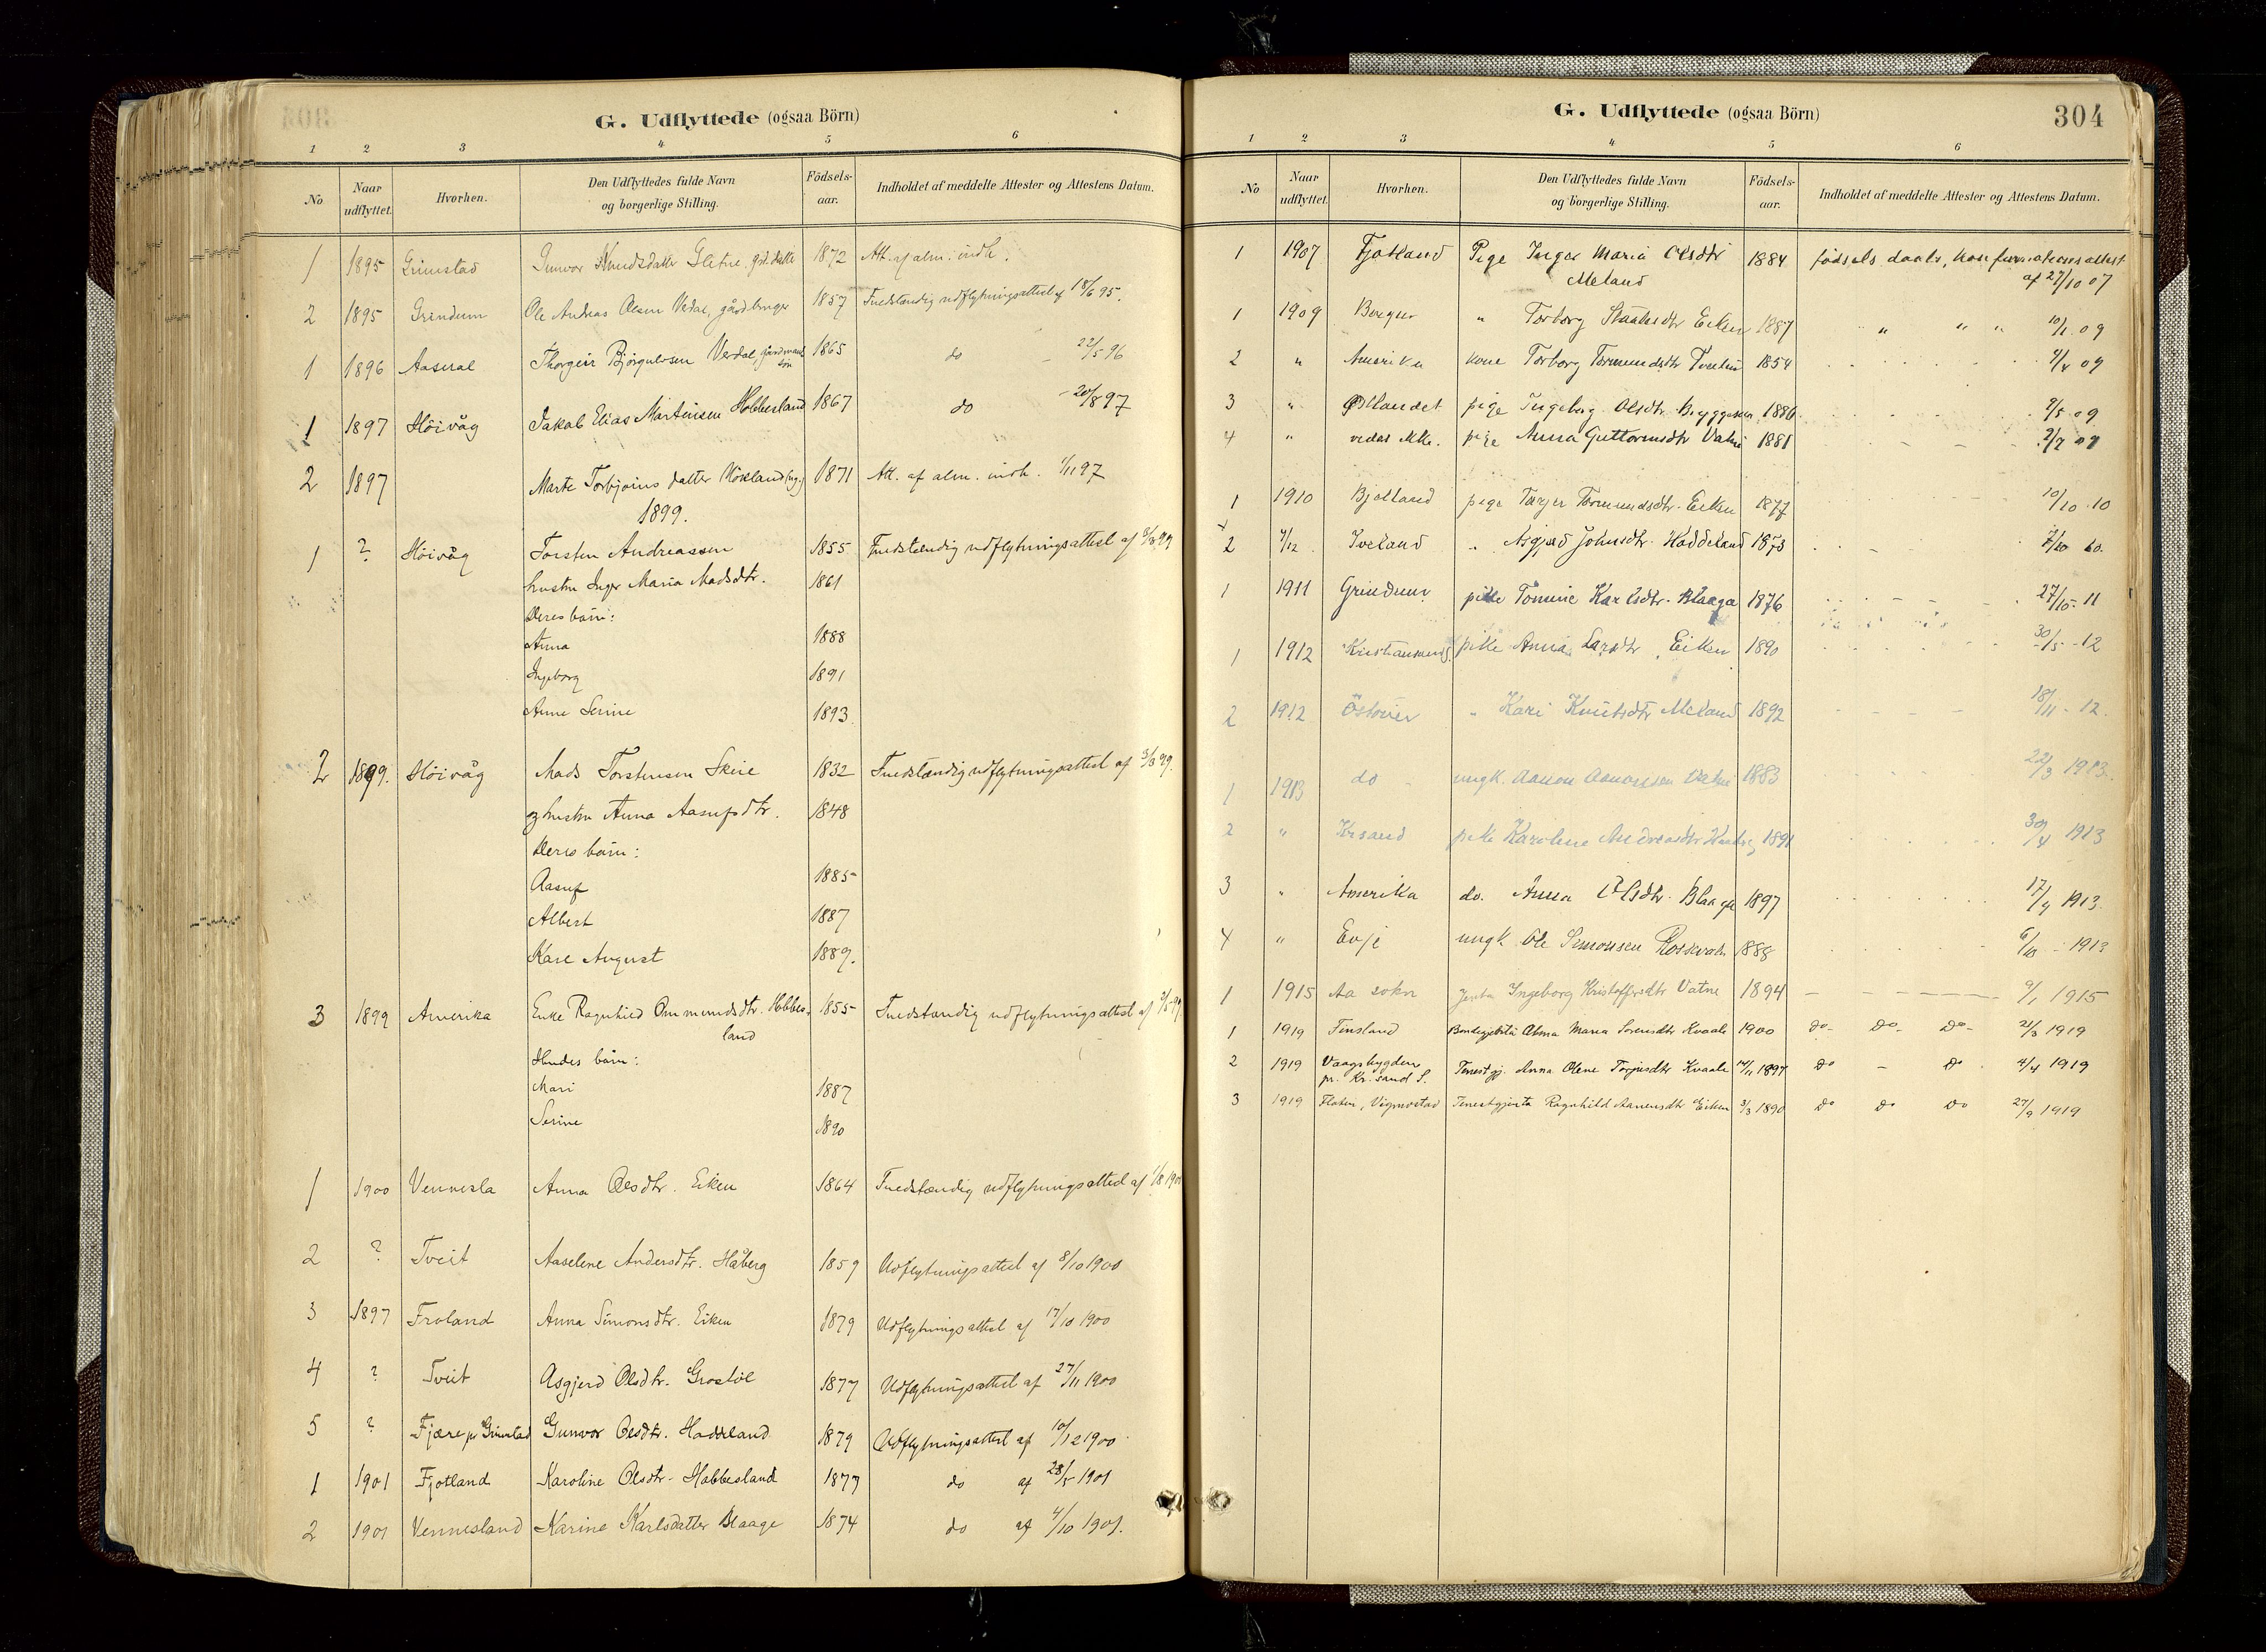 G. Udflyttede (ogsaa Börn)
1 2 3 4 5 6
No Naar udflyttet. Hvorhen. Den Udflyttedes fulde Navn og borgerlige Stilling. Födsels-aar. Indholdet af meddelte Attester og Attestens Datum.
1 1895 Grimstad Gunvor Knudsdatter 1872 Att. af alm. indh.
2 1895 Grindum Ole Andreas Olsen Verdal, gårdbruger 1857 Fuldstændig udflytningsattest af 18/6 95.
1 1896 Aaseral Thorgeir Bjørgulvsen Verdal, gårdmands søn 1865 do - 22/5 96
1 1897 Höivåg Jakob Elias Martinsen Hobbesland 1867 do - 20/8 97
2 1897 Marte Torbjørns datter 1871 Att. af alm. indh. 1/11 97
1899.
1 ? Höivåg Torsten Andreassen 1855 Fuldstændig udflytningsattest af 99
hustru Inger Maria Madsdtr. 1861
Deres börn:
Anna 1888
Ingeborg 1891
Anne Serine 1893.
2 1899. Höivåg Mads Torstensen Skeie 1832 Fuldstændig udflytningsattest af 3/3 99.
og hustru Anna Aasufsdtr. 1848
Deres børn:
Aasuf 1885
Albert 1887
Karl August 1889.
3 1899 Amerika Enke Ragnhild Ommundsdtr. Hobbes- 1855 Fuldstændig udflytningsattest af 99.
land
Hendes børn:
Mari 1887
Serine 1890
1 1900 Vennesla Anna Olsdtr. Eiken 1864 Fuldstændig udflytningsattest af 1/8 1900
2 ? Tveit Aaselene Andersdtr. Håberg 1859 Udflytningsattest af 8/10 1900
3 1897 Froland Anna Simonsdtr. Eiken 1879 Udflytningsattest af 17/10 1900
4 ? Tveit Asgjerd Olsdtr. Grostøl 1877 Udflytningsattest af 27/11 1900
5 ? Fjære pr Grimstad Gunvor Olsdtr. Haddeland 1879 Udflytningsattest af 10/12 1900
1 1901 Fjotland Karoline Olsdtr. Hobbesland 1877 do af 28/5 1901
2 1901 Vennesland Karine Karlsdatter Blaage 1874 do af 4/10 1901.
G. Udflyttede (ogsaa Börn) 304
1 2 3 4 5 6
No Naar udflyttet. Hvorhen. Den Udflyttedes fulde Navn og borgerlige Stilling. Födsels-aar. Indholdet af meddelte Attester og Attestens Datum.
1 1907 Fjotland Pige Inger Maria Olsdtr 1884 födsels daabs, konfirmationsattest
Meland af 27/10 07
1 1909 Bergen " Torborg Eiken 1887 " " " 10/1 09
2 " Amerika kone Torborg Tormundsdtr 1854 09
3 " pige Ingeborg Olsdtr. 1886 9/5 09
4 " pige Anna Guttormsdtr Vatne 1881 2/7 09
1 1910 Bjelland pige Tarjer Tormundsdtr. Eiken 1877 10/10 10
2 4/12 Iveland " Asgjerd Johnsdtr. Haddeland 1873 10.
1 1911 Grindum pike Tomine Karlsdtr. Blaaga 1876 27/10 11
1 1912 Kristiansand pike Anna Larsdtr Eiken 1890 30/5 - 12
2 1912 " Kari Knutsdtr Meland 1892 18/11 - 12.
1 1913 do ungk. Aanen Aanonsen Vatne 1883 22/3 1913.
2 " Krsand pike Karoline Andreasdtr 1891 30/4 1913
3 " Amerika do. Anna Olsdtr. Blaage 1897 17/4 1913.
4 " Evje ungk Ole Simonsen 1888 6/10 - 1913
1 1915 Aa sokn Jenta Ingeborg Kristoffersdtr Vatne 1894 9/1 1915
1 1919 Finsland Bondegjenta Alma Maria Sorensdtr Kvaale 1900 Do- Do- Do- 21/3 1919
2 1919 Vaagsbygden pr. Kr.sand S. Tenestgj. Anna Olene Torjusdtr Kvaale 14/11 1897 Do - Do. 4/4 1919
3 1919 Flaten, Vigmostad Tenestgjenta Ragnhild Aanensdtr Eiken 3/3 1890 Do Do Do 27/9 1919